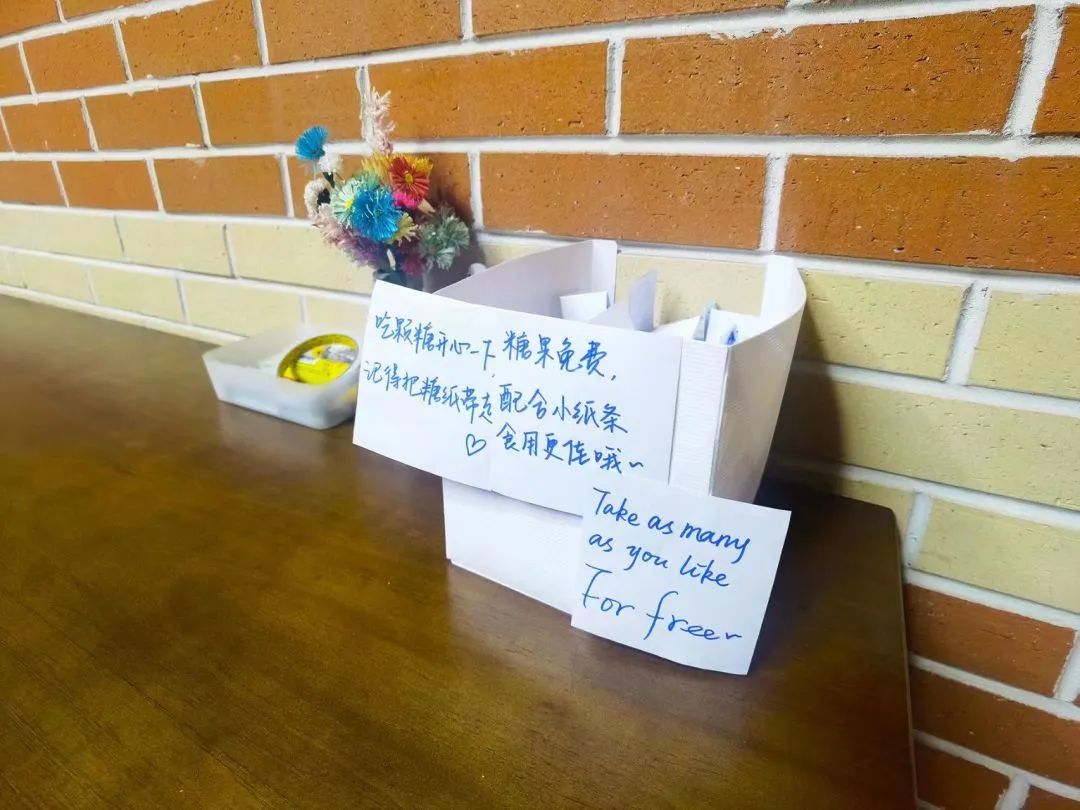 吃颗糖开心一下,糖果免费,
记得把糖纸带走 配合小纸条
♡ 食用更佳哦~
Take as many
as you like
For free~